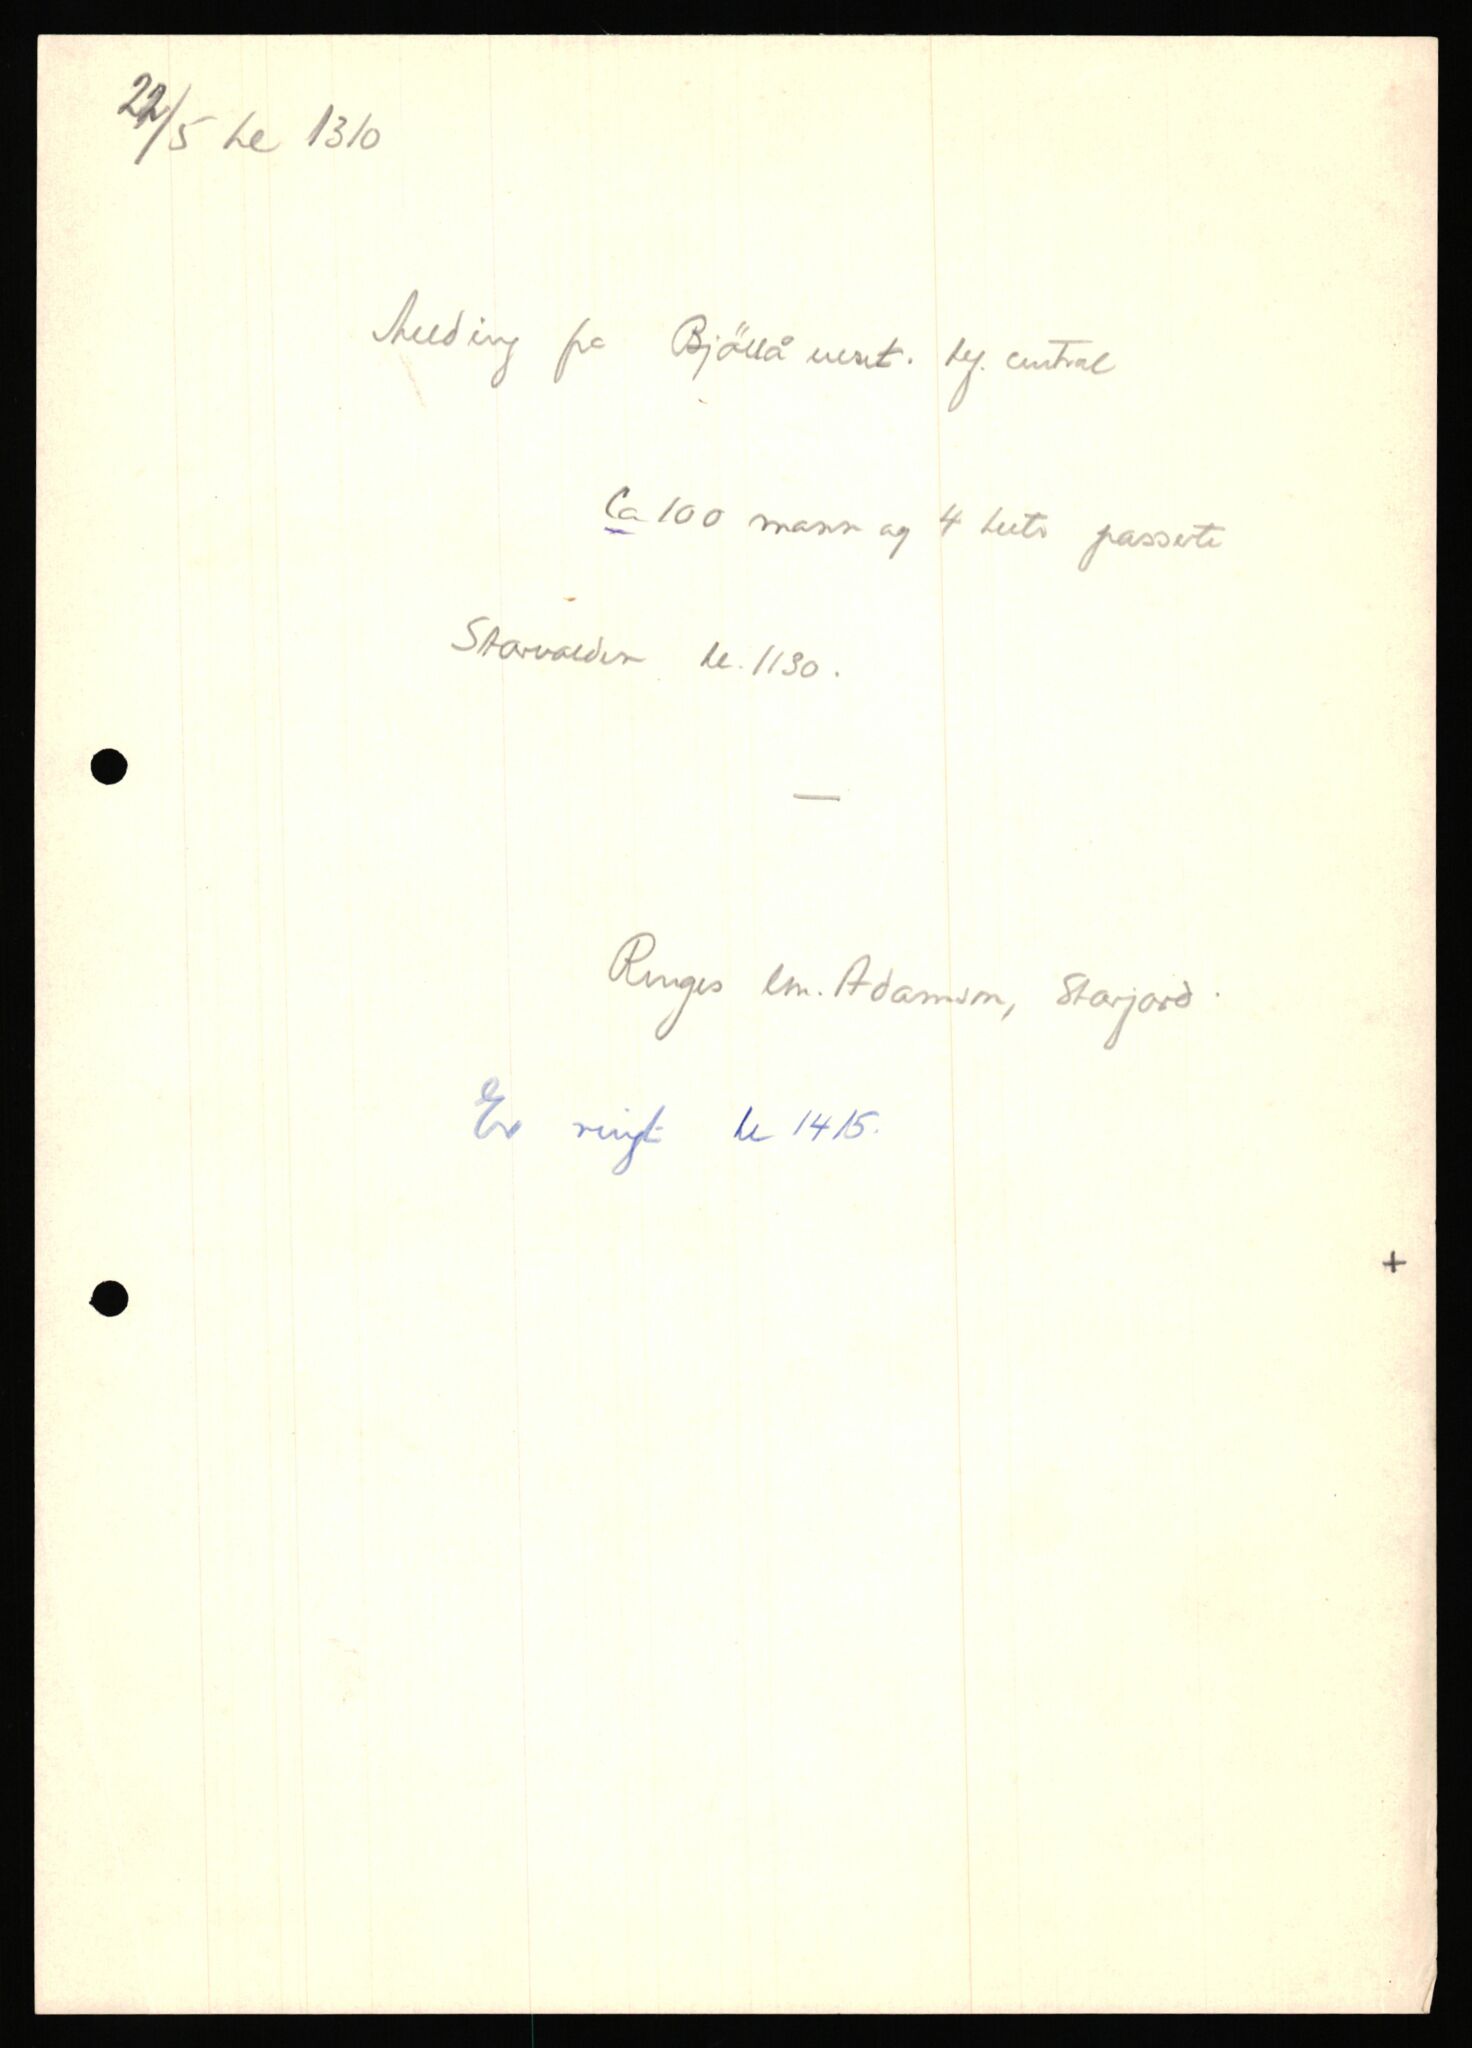 22/5 kl 1310
Melding fra Bjöllånest. lg. central
Ca 100 mann og 4 hester passerte
Storvolden kl. 1130.
—
Ringes lm. Adamson, Storjord.
Er ringt kl 1415.
+